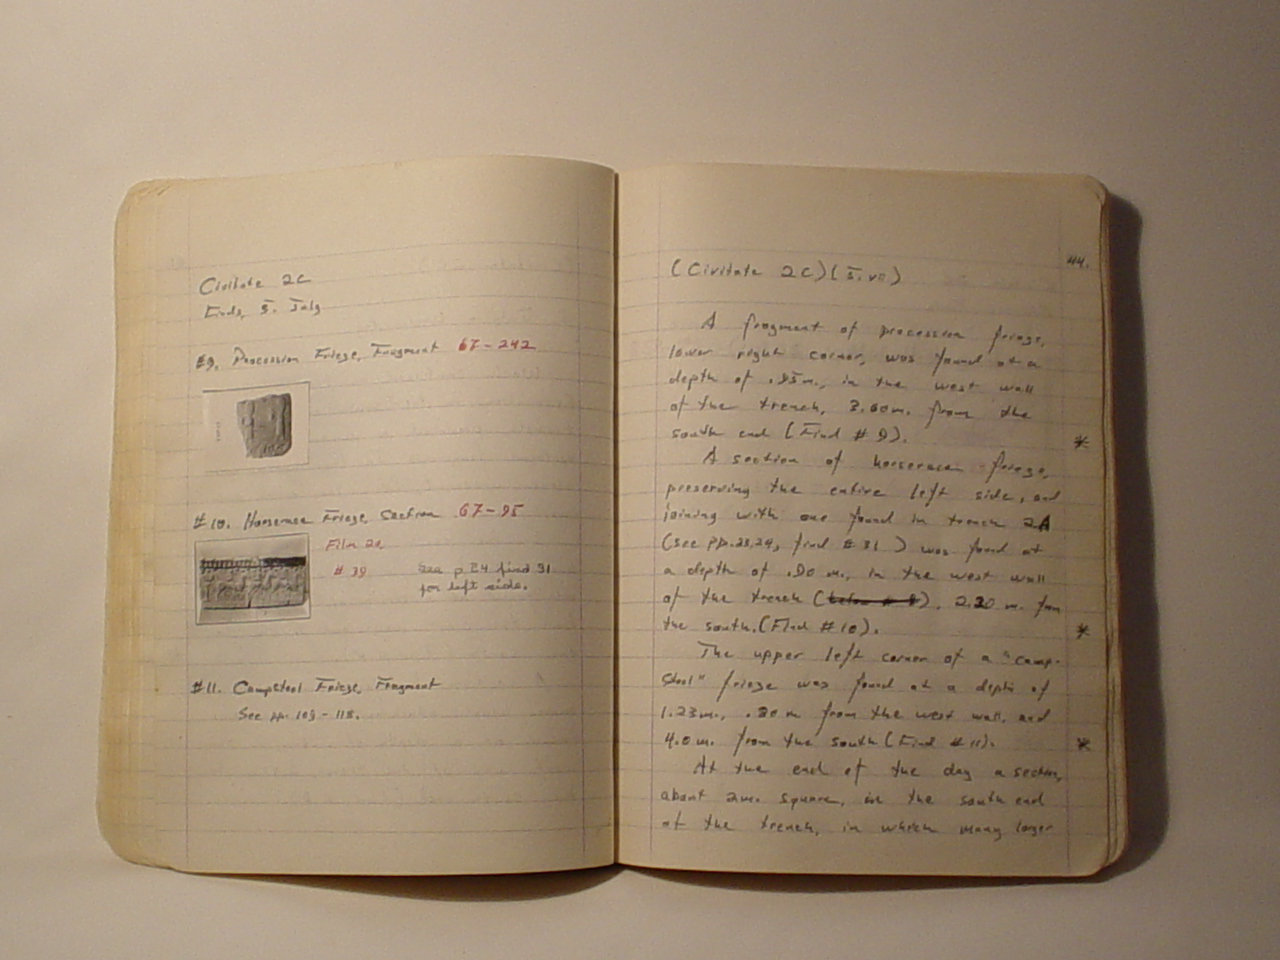 Civitate 2C
Finds, 5. July
#9. Procession Frieze, Fragment 67-242
#10. Horserace Frieze, Section 67-95
Film 20
#39
See p 24 find 31
for left side.
#11. Campstool Frieze, Fragment
See pp. 109-118.
44.
(Civitate 2C) (5. vii)
A fragment of procession frieze,
lower right corner, was found at a
depth of .85m., in the west wall
of the trench, 3.60m. from the
south end (Find #9).
*
A section of horserace frieze,
preserving the entire left side, and
joining with one found in trench 2A
(see pp. 23,24, find #31) was found at
a depth of .90 m., in the west wall
of the trench (below # 9), 2.20 m. from
the south. (Find #10).
*
The upper left corner of a "camp-
stool" frieze was found at a depth of
1.23m., .20 m from the west wall, and
4.0 m. from the south (Find #11).
*
At the end of the day a section,
about 2m. square, in the south end
of the trench, in which many larger